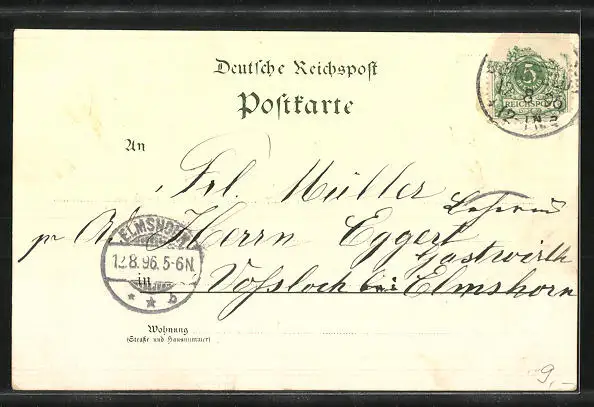 Deutsche Reichspost
Postkarte
5
REICHSPOST
An
Frl. Müller
Lehrerin
pr Ad. Herrn Eggert
Gastwirth
ELMSHORN
12.8.96.5-6N.
* * b
in Voßloch bei Elmshorn
Wohnung
(Straße und Hausnummer)
9,-